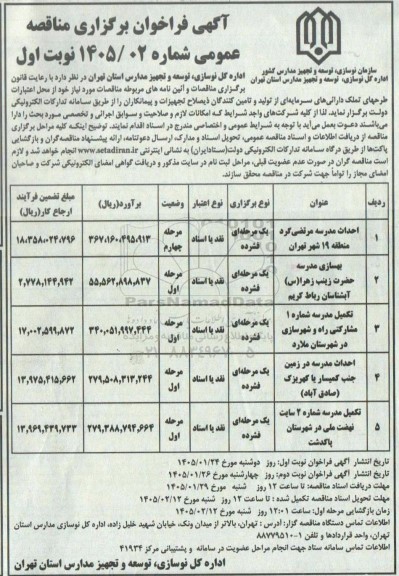 آگهی فراخوان برگزاری مناقصه
عمومی شماره ۰۲ /۱۴۰۵ نوبت اول
سازمان نوسازی، توسعه و تجهیز مدارس کشور
اداره کل نوسازی، توسعه و تجهیز مدارس استان تهران
اداره کل نوسازی، توسعه و تجهیز مدارس استان تهران در نظر دارد با رعایت قانون
برگزاری مناقصات و آئین نامه های مربوطه مناقصات مورد نیاز خود از محل اعتبارات
طرحهای تملک دارائی‌های سرمایه‌ای از تولید و تامین کنندگان ذیصلاح تجهیزات و پیمانکاران را از طریق سامانه تدارکات الکترونیکی
دولت برگزار نماید. لذا از کلیه شرکت‌های واجد شرایط که امکانات لازم و صلاحیت و سوابق اجرائی و تخصصی مورد بحث را دارا
می‌باشند دعوت بعمل می‌آید با توجه به شرایط عمومی و اختصاصی مندرج در اسناد اقدام نمایند. توضیح اینکه کلیه مراحل برگزاری
مناقصه از دریافت اطلاعات و اسناد مناقصه عمومی، تحویل اسناد و مدارک، ارسال دعوتنامه، ارائه پیشنهاد مناقصه‌گران و بازگشایی
پاکت‌ها از طریق درگاه سامانه تدارکات الکترونیکی دولت(ستادایران) به نشانی اینترنتی www.setadiran.ir انجام خواهد شد و لازم
است مناقصه گران در صورت عدم عضویت قبلی، مراحل ثبت نام در سایت مذکور و دریافت گواهی امضای الکترونیکی شرکت و صاحبان
امضای مجاز را تواماً جهت شرکت در مناقصه محقق سازند.
ردیف عنوان نوع برگزاری نوع اعتبار وضعیت برآورد(ریال) مبلغ تضمین فرآیند ارجاع کار(ریال)
۱ احداث مدرسه مرتضی‌گرد منطقه ۱۹ شهر تهران یک مرحله‌ای فشرده نقد یا اسناد مرحله چهارم ۳۶۷،۱۶۰،۴۹۵،۹۱۳ ۱۸،۳۵۸،۰۲۴،۷۹۶
۲ بهسازی مدرسه حضرت زینب زهرا(س) آبشناسان رباط کریم یک مرحله‌ای فشرده نقد یا اسناد مرحله اول ۵۵,۵۶۲,۸۹۸,۸۳۷ ۲,۷۷۸,۱۴۴,۹۴۲
۳ تکمیل مدرسه شماره ۱ مشارکتی راه و شهرسازی در شهرستان ملارد یک مرحله‌ای فشرده نقد یا اسناد مرحله اول ۳۴۰,۰۵۱,۹۹۷,۴۴۴ ۱۷,۰۰۲,۵۹۹,۸۷۲
۴ احداث مدرسه در زمین جنب کمیسار یا کهریزک (صادق آباد) یک مرحله‌ای فشرده نقد یا اسناد مرحله اول ۲۷۹,۵۰۸,۳۱۳,۲۴۴ ۱۳,۹۷۵,۴۱۵,۶۶۲
۵ تکمیل مدرسه شماره ۲ سایت نهضت ملی در شهرستان پاکدشت یک مرحله‌ای فشرده نقد یا اسناد مرحله اول ۲۷۹,۳۸۸,۷۹۴,۶۶۴ ۱۳,۹۶۹,۴۳۹,۷۳۳
تاریخ انتشار آگهی فراخوان نوبت اول: روز دوشنبه مورخ ۱۴۰۵/۰۱/۲۴
تاریخ انتشار آگهی فراخوان نوبت دوم: روز چهارشنبه مورخ ۱۴۰۵/۰۱/۲۶
مهلت دریافت اسناد مناقصه: تا ساعت ۱۲ روز شنبه مورخ ۱۴۰۵/۰۱/۲۹
مهلت تحویل اسناد مناقصه تکمیل شده : تا ساعت ۱۲ روز شنبه مورخ ۱۴۰۵/۰۲/۱۲
زمان بازگشایی مرحله اول: ساعت ۱۲:۰۱ روز شنبه مورخ ۱۴۰۵/۰۲/۱۲
اطلاعات تماس دستگاه مناقصه گزار: آدرس : تهران، بالاتر از میدان ونک، خیابان شهید خلیل زاده، اداره کل نوسازی مدارس استان
تهران، واحد قراردادها و تلفن ۱-۸۸۷۷۹۵۱۰
اطلاعات تماس سامانه ستاد جهت انجام مراحل عضویت در سامانه و پشتیبانی مرکز ۴۱۹۳۴
اداره کل نوسازی، توسعه و تجهیز مدارس استان تهران
ParsNamadData